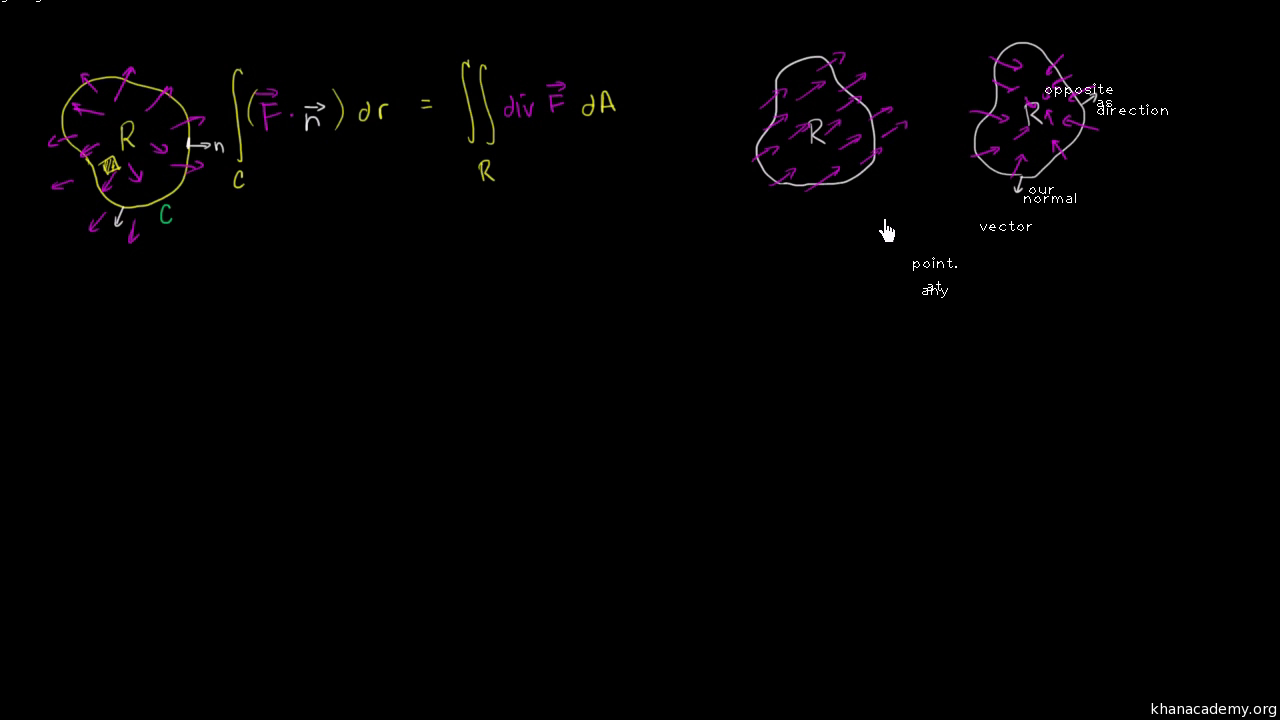 R
n
C
∫_C (F⃗ · n⃗) dr = ∬_R div F⃗ dA
R
R
opposite
as
direction
our
normal
vector
point.
at
any
khanacademy.org